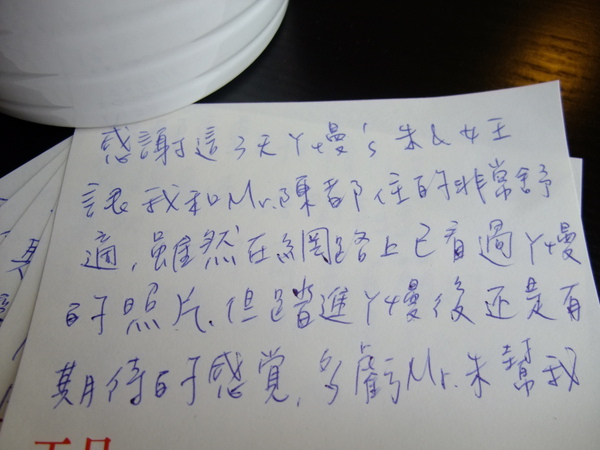 感謝這3天丫嫚's 朱&女王
讓我和Mr.陳都住的非常舒
適,雖然在網路上已看過丫嫚
的照片.但踏進丫嫚後还是有
期待的感覚,多虧Mr.朱幫我